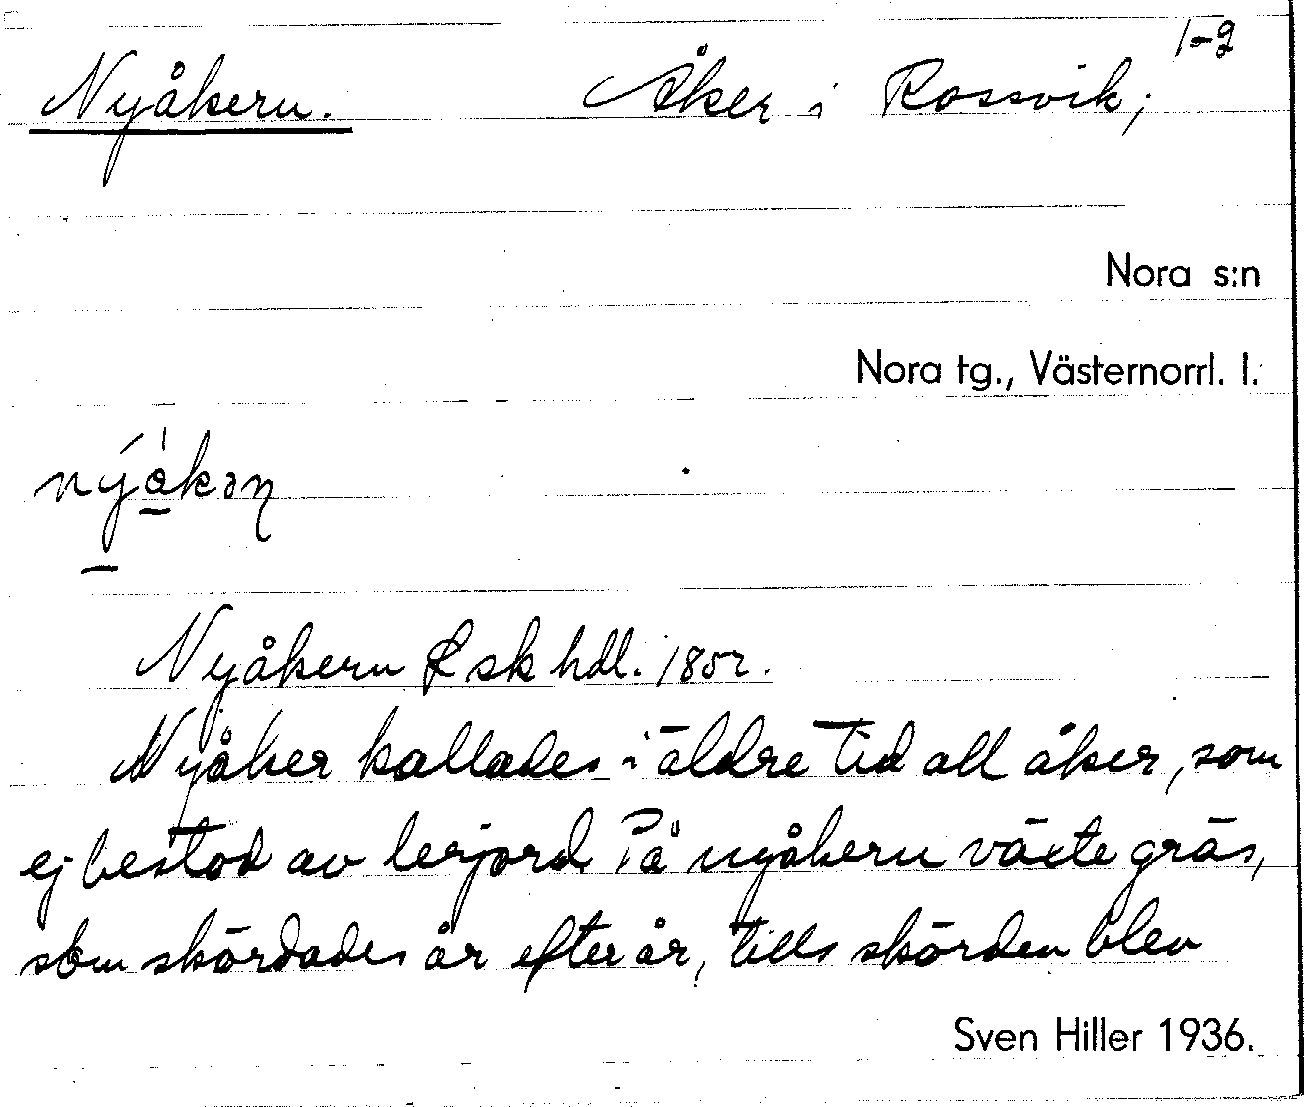 1-2
Nyåkern. Åker i Rossvik;
Nora s:n
Nora tg., Västernorrl. l.
Nyåkern Lsk hdl. 1802.
Nyåker kallades i äldre tid all åker, som
ej bestod av lerjord. På nyåkern växte gräs,
som skördades år efter år, tills skörden blev
Sven Hiller 1936.